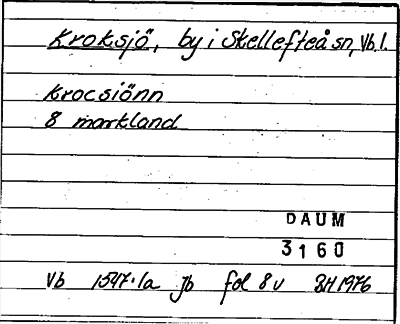 Kroksjö, by i Skellefteå sn, Vb. l.
Krocsiönn
8 markland
DAUM
3160
Vb 1547:1a Jb fol 8 v BH 1976